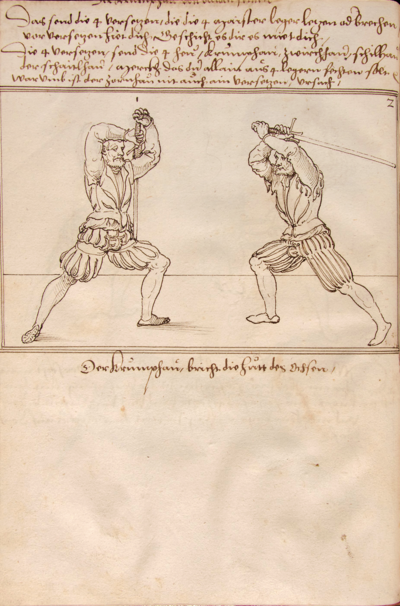 Das send die 4 versetzen, die die 4 maister leger letzen od brechen
vor versetzen hiet dich, Geschicht es dir es miet dich.
Die 4 versetzen, send die 4 heü, krumphaü, zwirchhaü, schilhaü
der schaitlhaü, das dü allain aüs 4 legern fechten solt
warumb ist der zornhaü nit aüch ain versetzen, ursach,
1
2
Der Krumphaü, bricht die hütt des Ochsen,